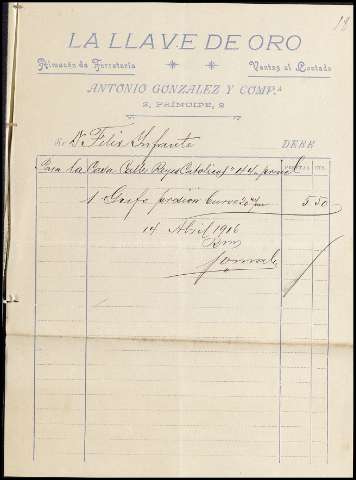 18
LA LLAVE DE ORO
Almacén de Ferretería Ventas al Contado
ANTONIO GONZALEZ Y COMP.ª
2, PRÍNCIPE, 2
D. Felix Infante DEBE
Para la Casa Calle Reyes Catolicos PESETAS CTS.
1 Grifo presion Curvo 20 m/m 5 50
14 Abril 1916